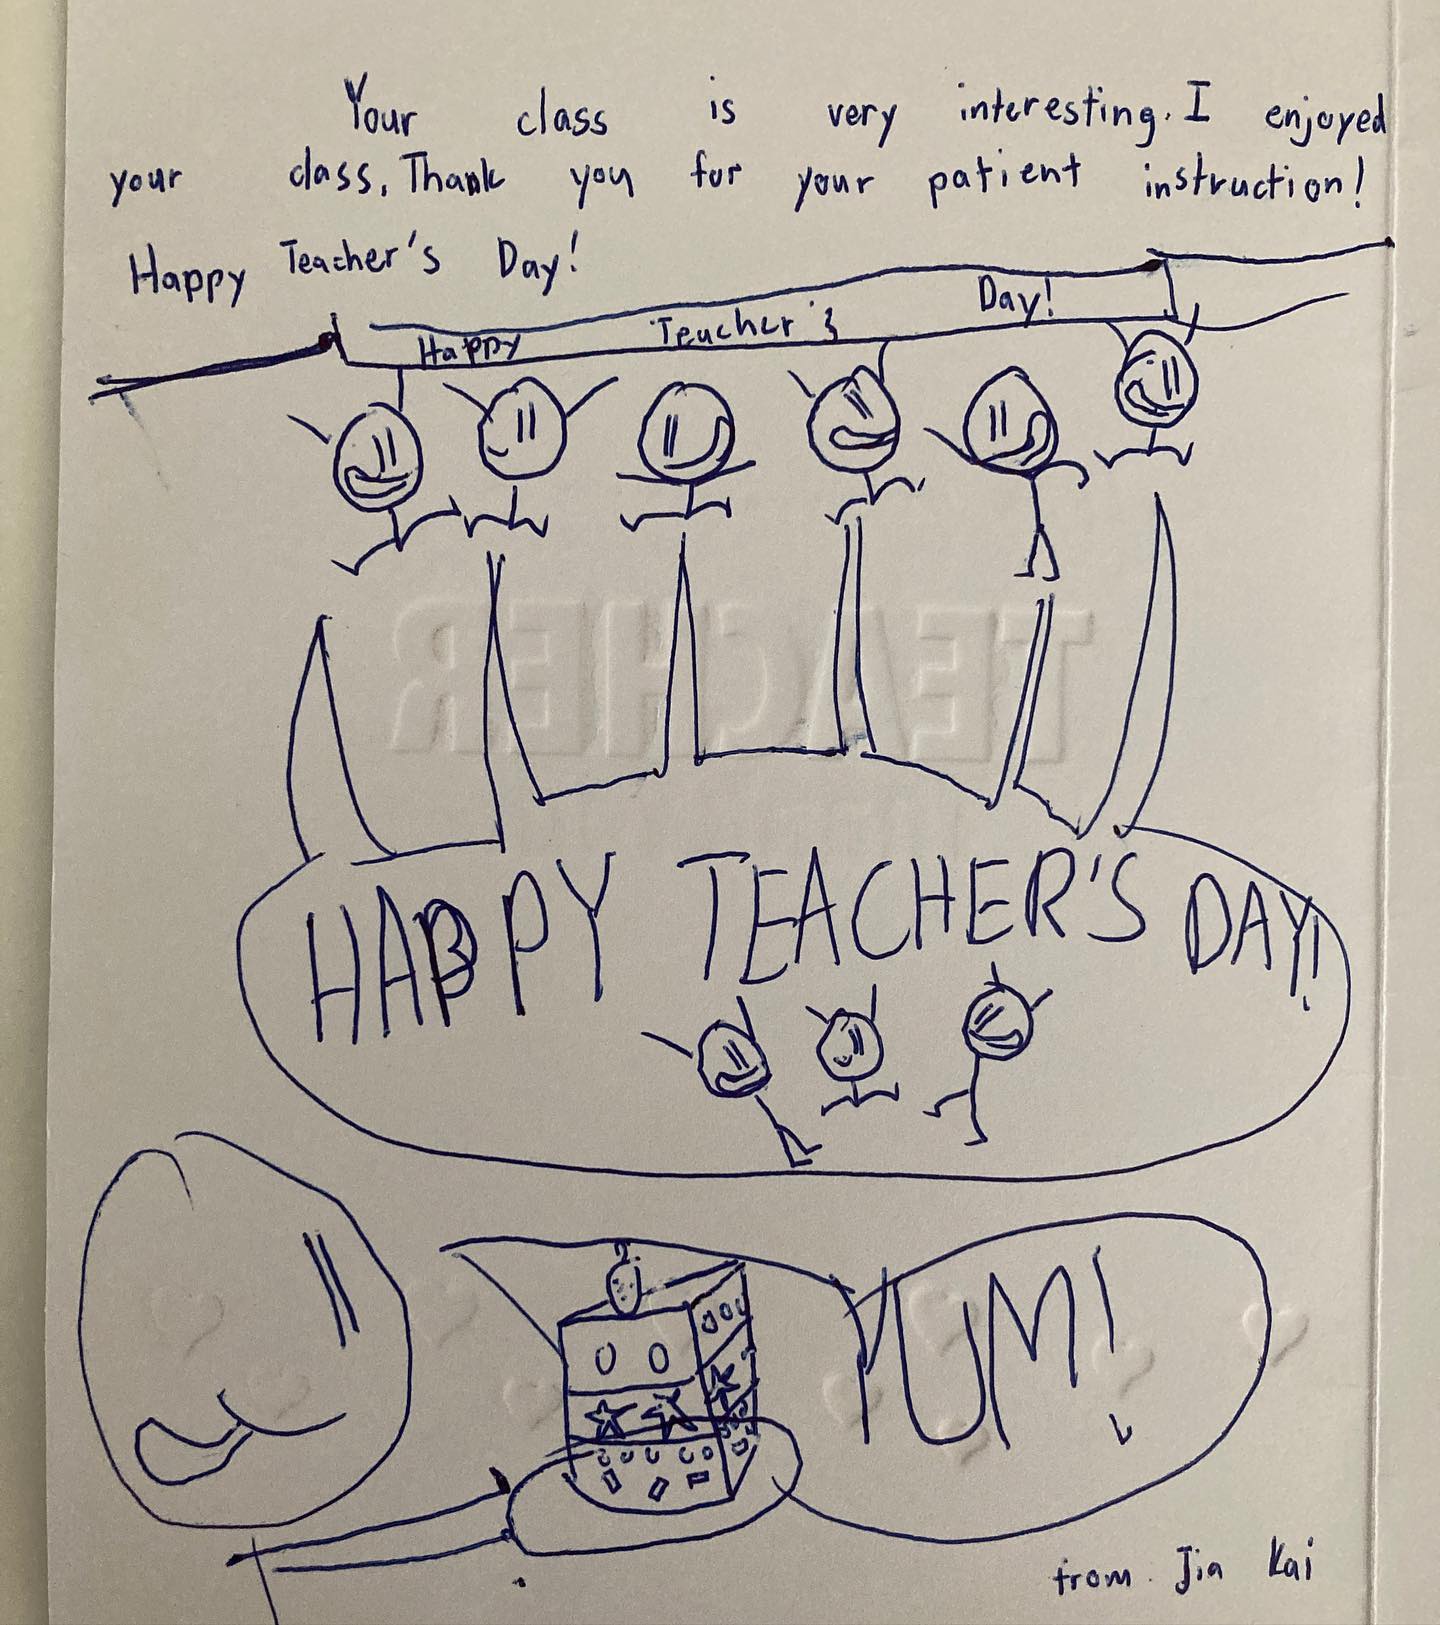 Your class is very interesting. I enjoyed
your class. Thank you for your patient instruction!
Happy Teacher's Day!
Happy Teacher's Day!
TEACHER
HAPPY TEACHER'S DAY!
YUM!
from Jia Kai